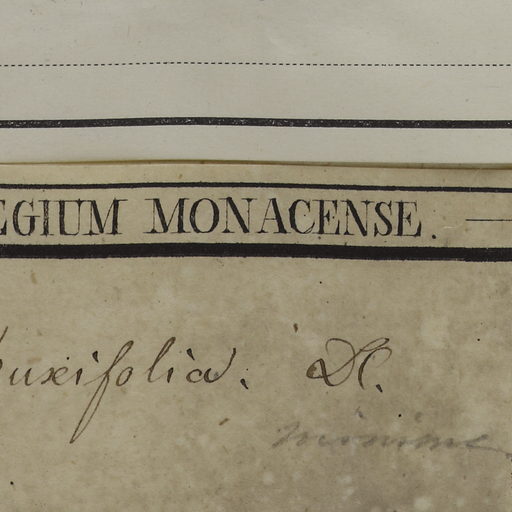 EGIUM MONACENSE.
buxifolia. DC.
minime